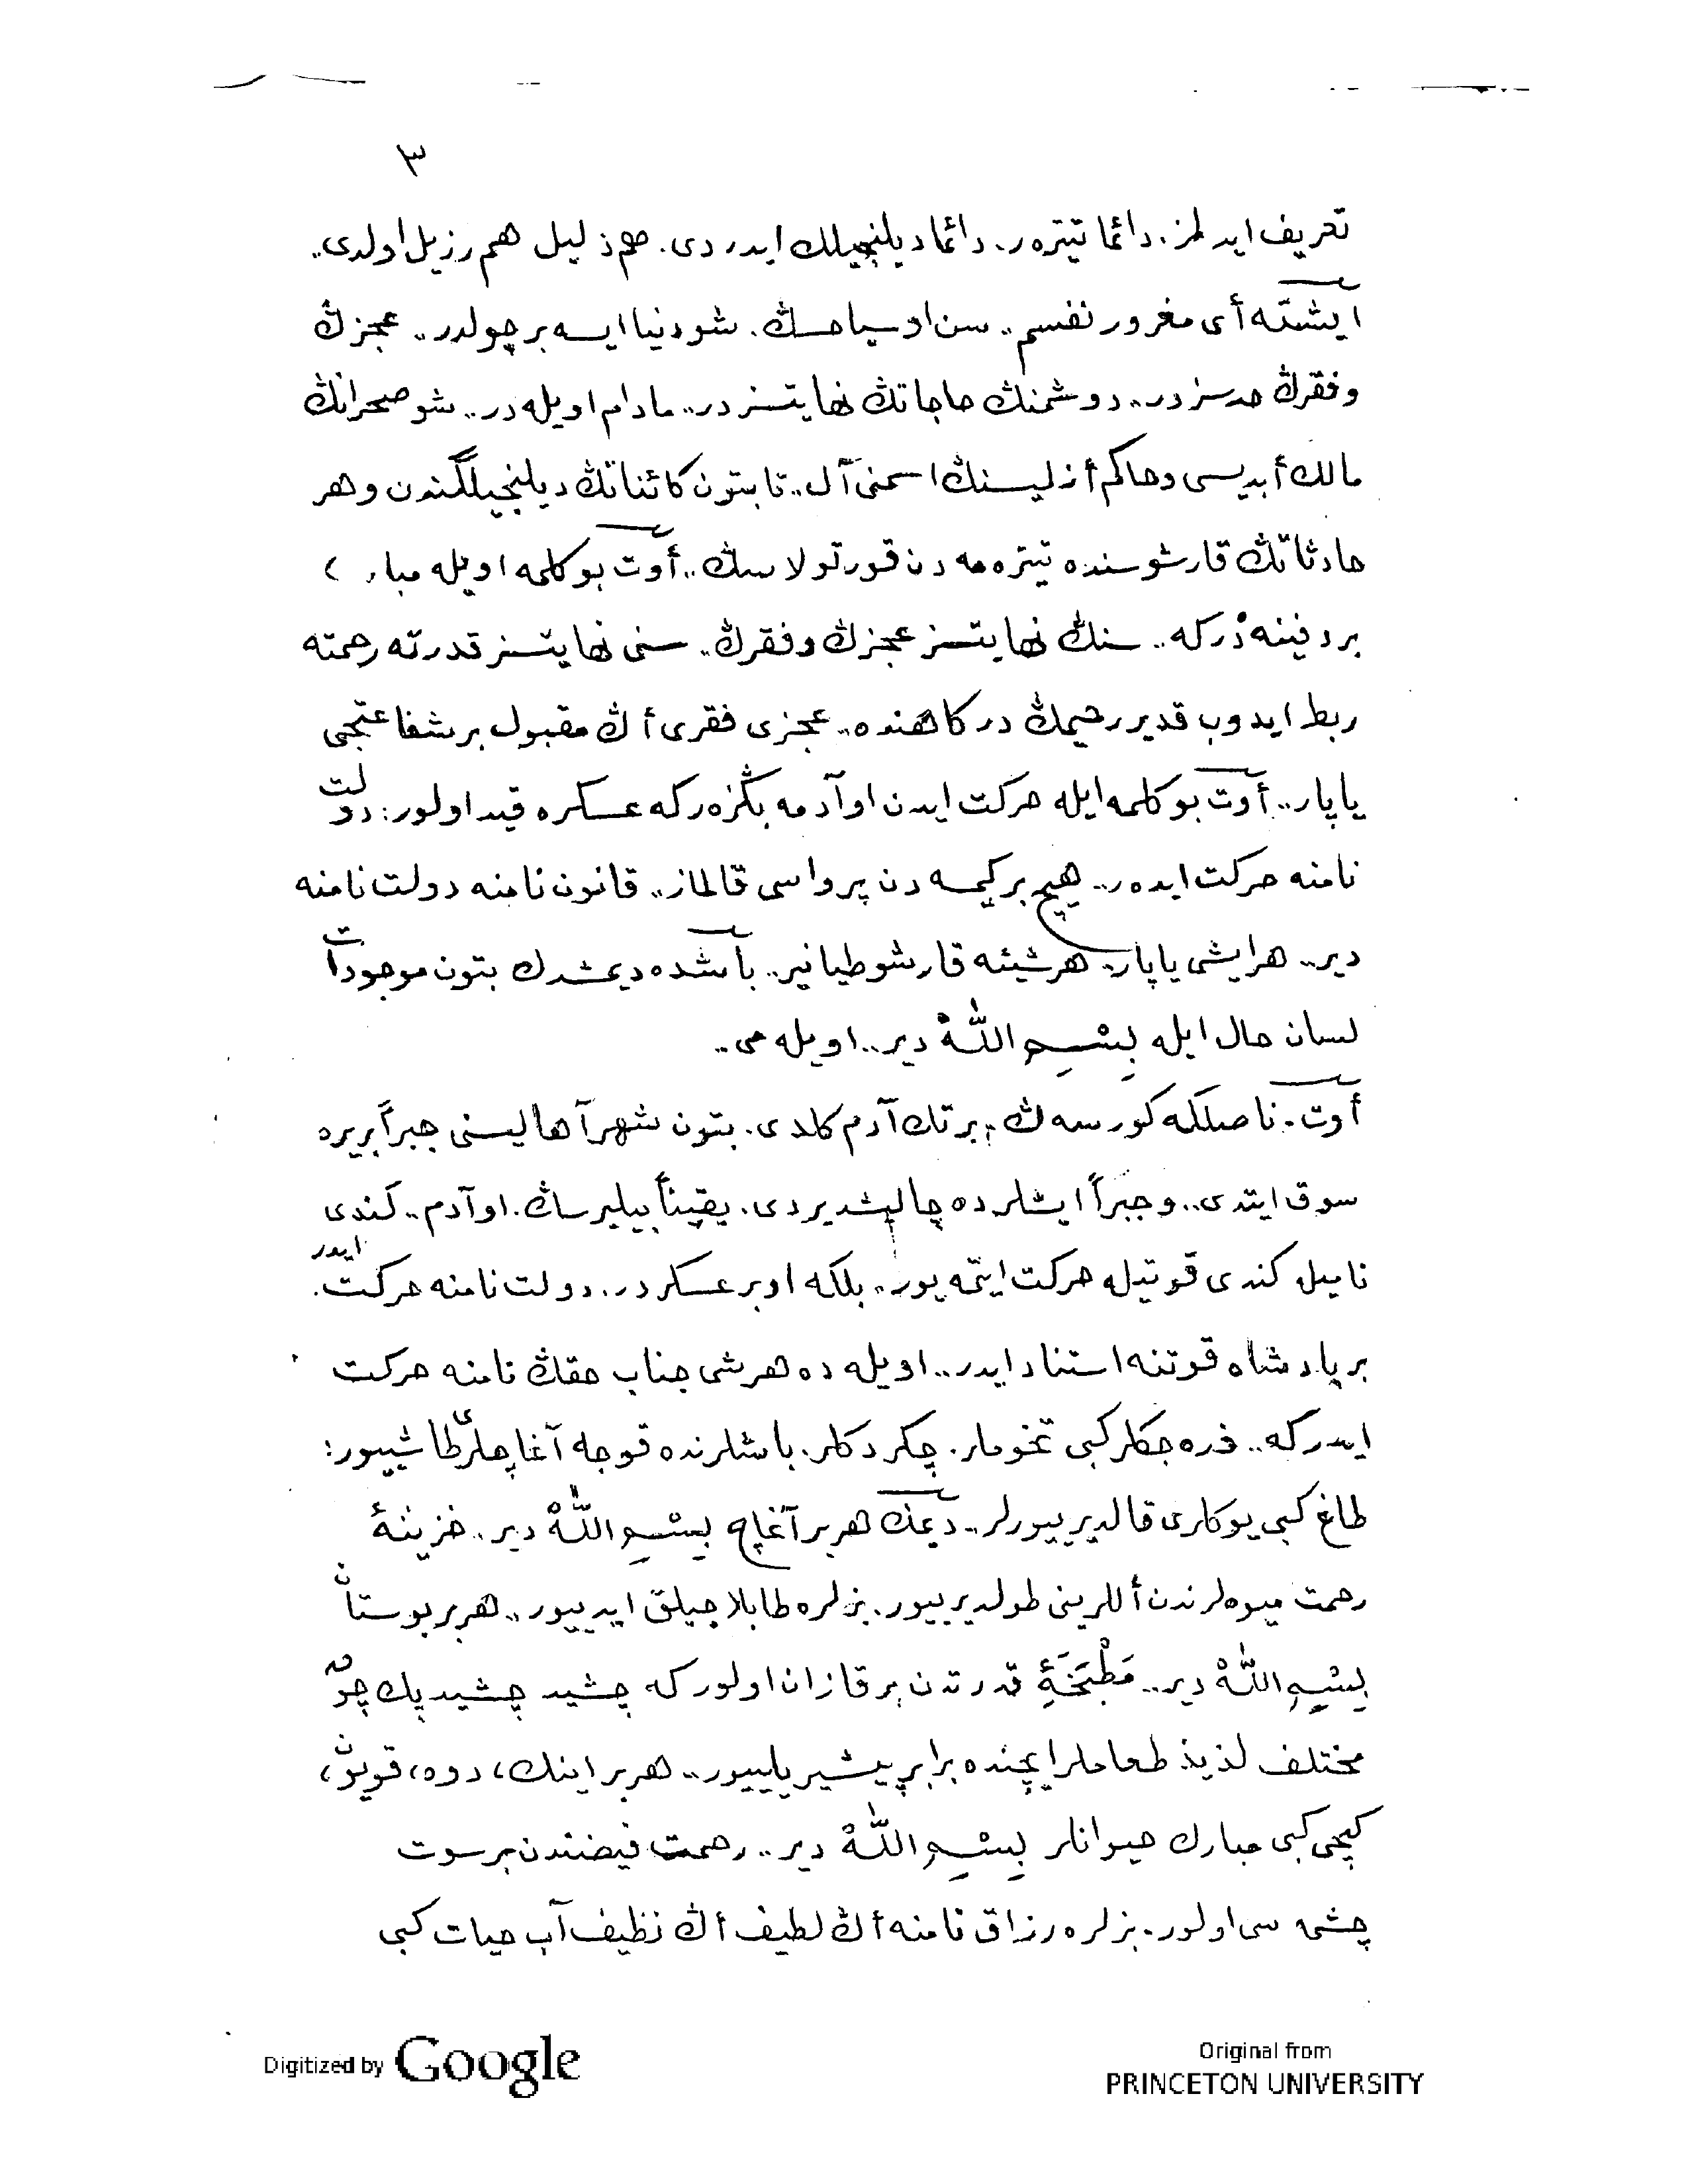 ٣
تعريف ايدلمز. دائما تيتره‌ر. دائما ديلنجيلك ايدردى. هم ذليل هم رزيل اولدى..
ايشته أى مغرور نفسم.. سن او سياحسڭ. شو دنيا ايسه بر چولدر.. عجزڭ
وفقرڭ حدسزدر.. دوشمنڭ حاجاتڭ نهايتسزدر.. مادام اويله‌در.. شو صحرانڭ
مالك أبديسى وحاكم أزليسنڭ اسمنى آل.. تا بتون كائناتڭ ديلنجيلگندن وهر
حادثاتڭ قارشوسنده تيتره‌مه‌دن قورتولاسڭ.. أوت بو كلمه اويله مبارك
بر دفينه‌در كه.. سنڭ نهايتسز عجزڭ وفقرڭ.. سنى نهايتسز قدرته رحمته
ربط ايدوب قدير رحيمڭ دركاهنده.. عجزى فقرى أڭ مقبول بر شفاعتجى
ياپار.. أوت بو كلمه ايله حركت ايدن او آدمه بڭزه‌ر كه عسكره قيد اولور: دولت
نامنه حركت ايده‌ر.. هيچ بر كيمسه‌دن پرواسى قالماز.. قانون نامنه دولت نامنه
دير.. هر ايشى ياپار.. هر شيئه قارشو طيانير.. باشده ديمشدك بتون موجودات
لسان حال ايله بِسْمِ اللّٰهْ دير.. اويله مى..
أوت. ناصلكه كورسه‌ڭ؛ بر تك آدم كلدى. بتون شهر آهاليسنى جبراً بر يره
سوق ايتدى.. وجبراً ايشلرده چاليشديردى. يقيناً بيليرسڭ. او آدم.. كندى
ناميله كندى قوتيله حركت ايتمه‌يور.. بلكه او بر عسكردر.. دولت نامنه حركت ايدر.
بر پادشاه قوتنه استناد ايدر.. اويله ده هر شى جناب حقڭ نامنه حركت
ايدر كه.. ذره‌جكلر كبى تخوملر. چكردكلر. باشلرنده قوجه آغاچلرى طاشييور:
طاغ كبى يوكلرى قالديرييورلر.. ديمك هر بر آغاچ بِسْمِ اللّٰهْ دير.. خزينۀ
رحمت ميوه‌لرندن أللرينى طولديرييور. بزلره طابلاجيلق ايدييور.. هر بر بوستان
بِسْمِ اللّٰهْ دير.. مَطْبَخَۀِ قدرتدن بر قازان اولور كه چشيد چشيد پك چوق
مختلف لذيذ طعاملر ايچنده برابر پيشيريلييور.. هر بر اينك، دوه، قويون،
كچى كبى مبارك حيوانلر بِسْمِ اللّٰهْ دير.. رحمت فيضندن بر سوت
چشمه‌سى اولور. بزلره رزاق نامنه أڭ لطيف أڭ نظيف آب حيات كبى
Digitized by Google
Original from
PRINCETON UNIVERSITY